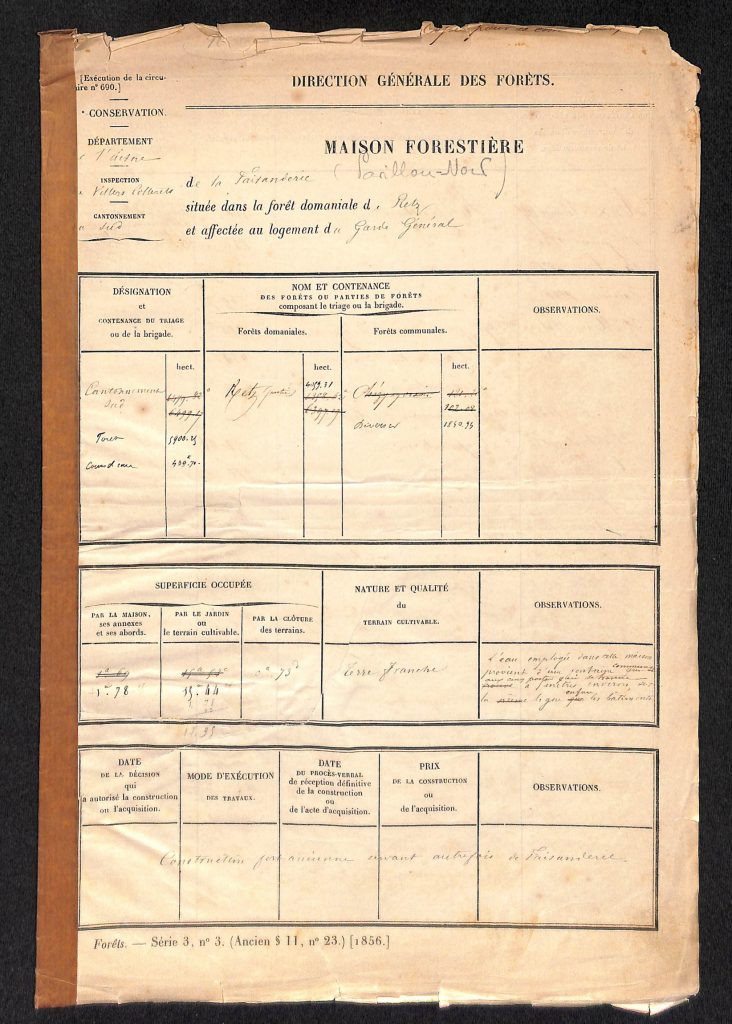 [Exécution de la circu-
ire nº 690.]
CONSERVATION.
DÉPARTEMENT
l'aisne
INSPECTION
Villers Cotterets
CANTONNEMENT
Sud
DIRECTION GÉNÉRALE DES FORÊTS.
MAISON FORESTIÈRE
de la Faisanderie (Pavillon-Noir)
située dans la forêt domaniale de Retz
et affectée au logement du Garde Général
DÉSIGNATION
et
CONTENANCE DU TRIAGE
ou de la brigade.
NOM ET CONTENANCE
DES FORÊTS OU PARTIES DE FORÊTS
composant le triage ou la brigade.
Forêts domaniales.
Forêts communales.
OBSERVATIONS.
hect.
hect.
hect.
Cantonnement
Sud
Retz (partie)
4459.31
Diverses
1840.95
Foret
5900.25
Cours d'eau
439.70
SUPERFICIE OCCUPÉE
PAR LA MAISON,
ses annexes
et ses abords.
PAR LE JARDIN
ou
le terrain cultivable.
PAR LA CLÔTURE
des terrains.
NATURE ET QUALITÉ
du
TERRAIN CULTIVABLE.
OBSERVATIONS.
1a 78
15a 44
0a 73
Terre Franche
L'eau employée dans cette maison
provient d'un
les bâtiments.
DATE
DE LA DÉCISION
qui
a autorisé la construction
ou l'acquisition.
MODE D'EXÉCUTION
DES TRAVAUX.
DATE
DU PROCÈS-VERBAL
de réception définitive
de la construction
ou
de l'acte d'acquisition.
PRIX
DE LA CONSTRUCTION
ou
de l'acquisition.
OBSERVATIONS.
Construction fort ancienne servant autrefois de Faisanderie
Forêts. — Série 3, nº 3. (Ancien § 11, nº 23.) [1856.]